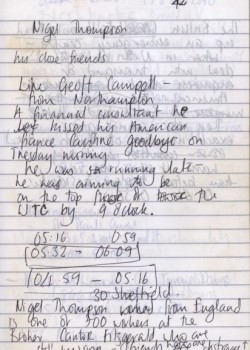 Nigel Thompson
his close friends
Like Geoff Campbell -
from Northampton
A financial consultant he
kissed his American
fiance Caroline goodbye on
Tuesday morning
he was running late
he was aiming to be
on the top of the
WTC by 9 o'clock.
05:16 0:59
05:32 - 06:09
01 59 - 05:16
30 Sheffield.
Nigel Thompson from England
is one of 700 workers at the
Broker Cantor Fitzgerald who are
still missing - friends